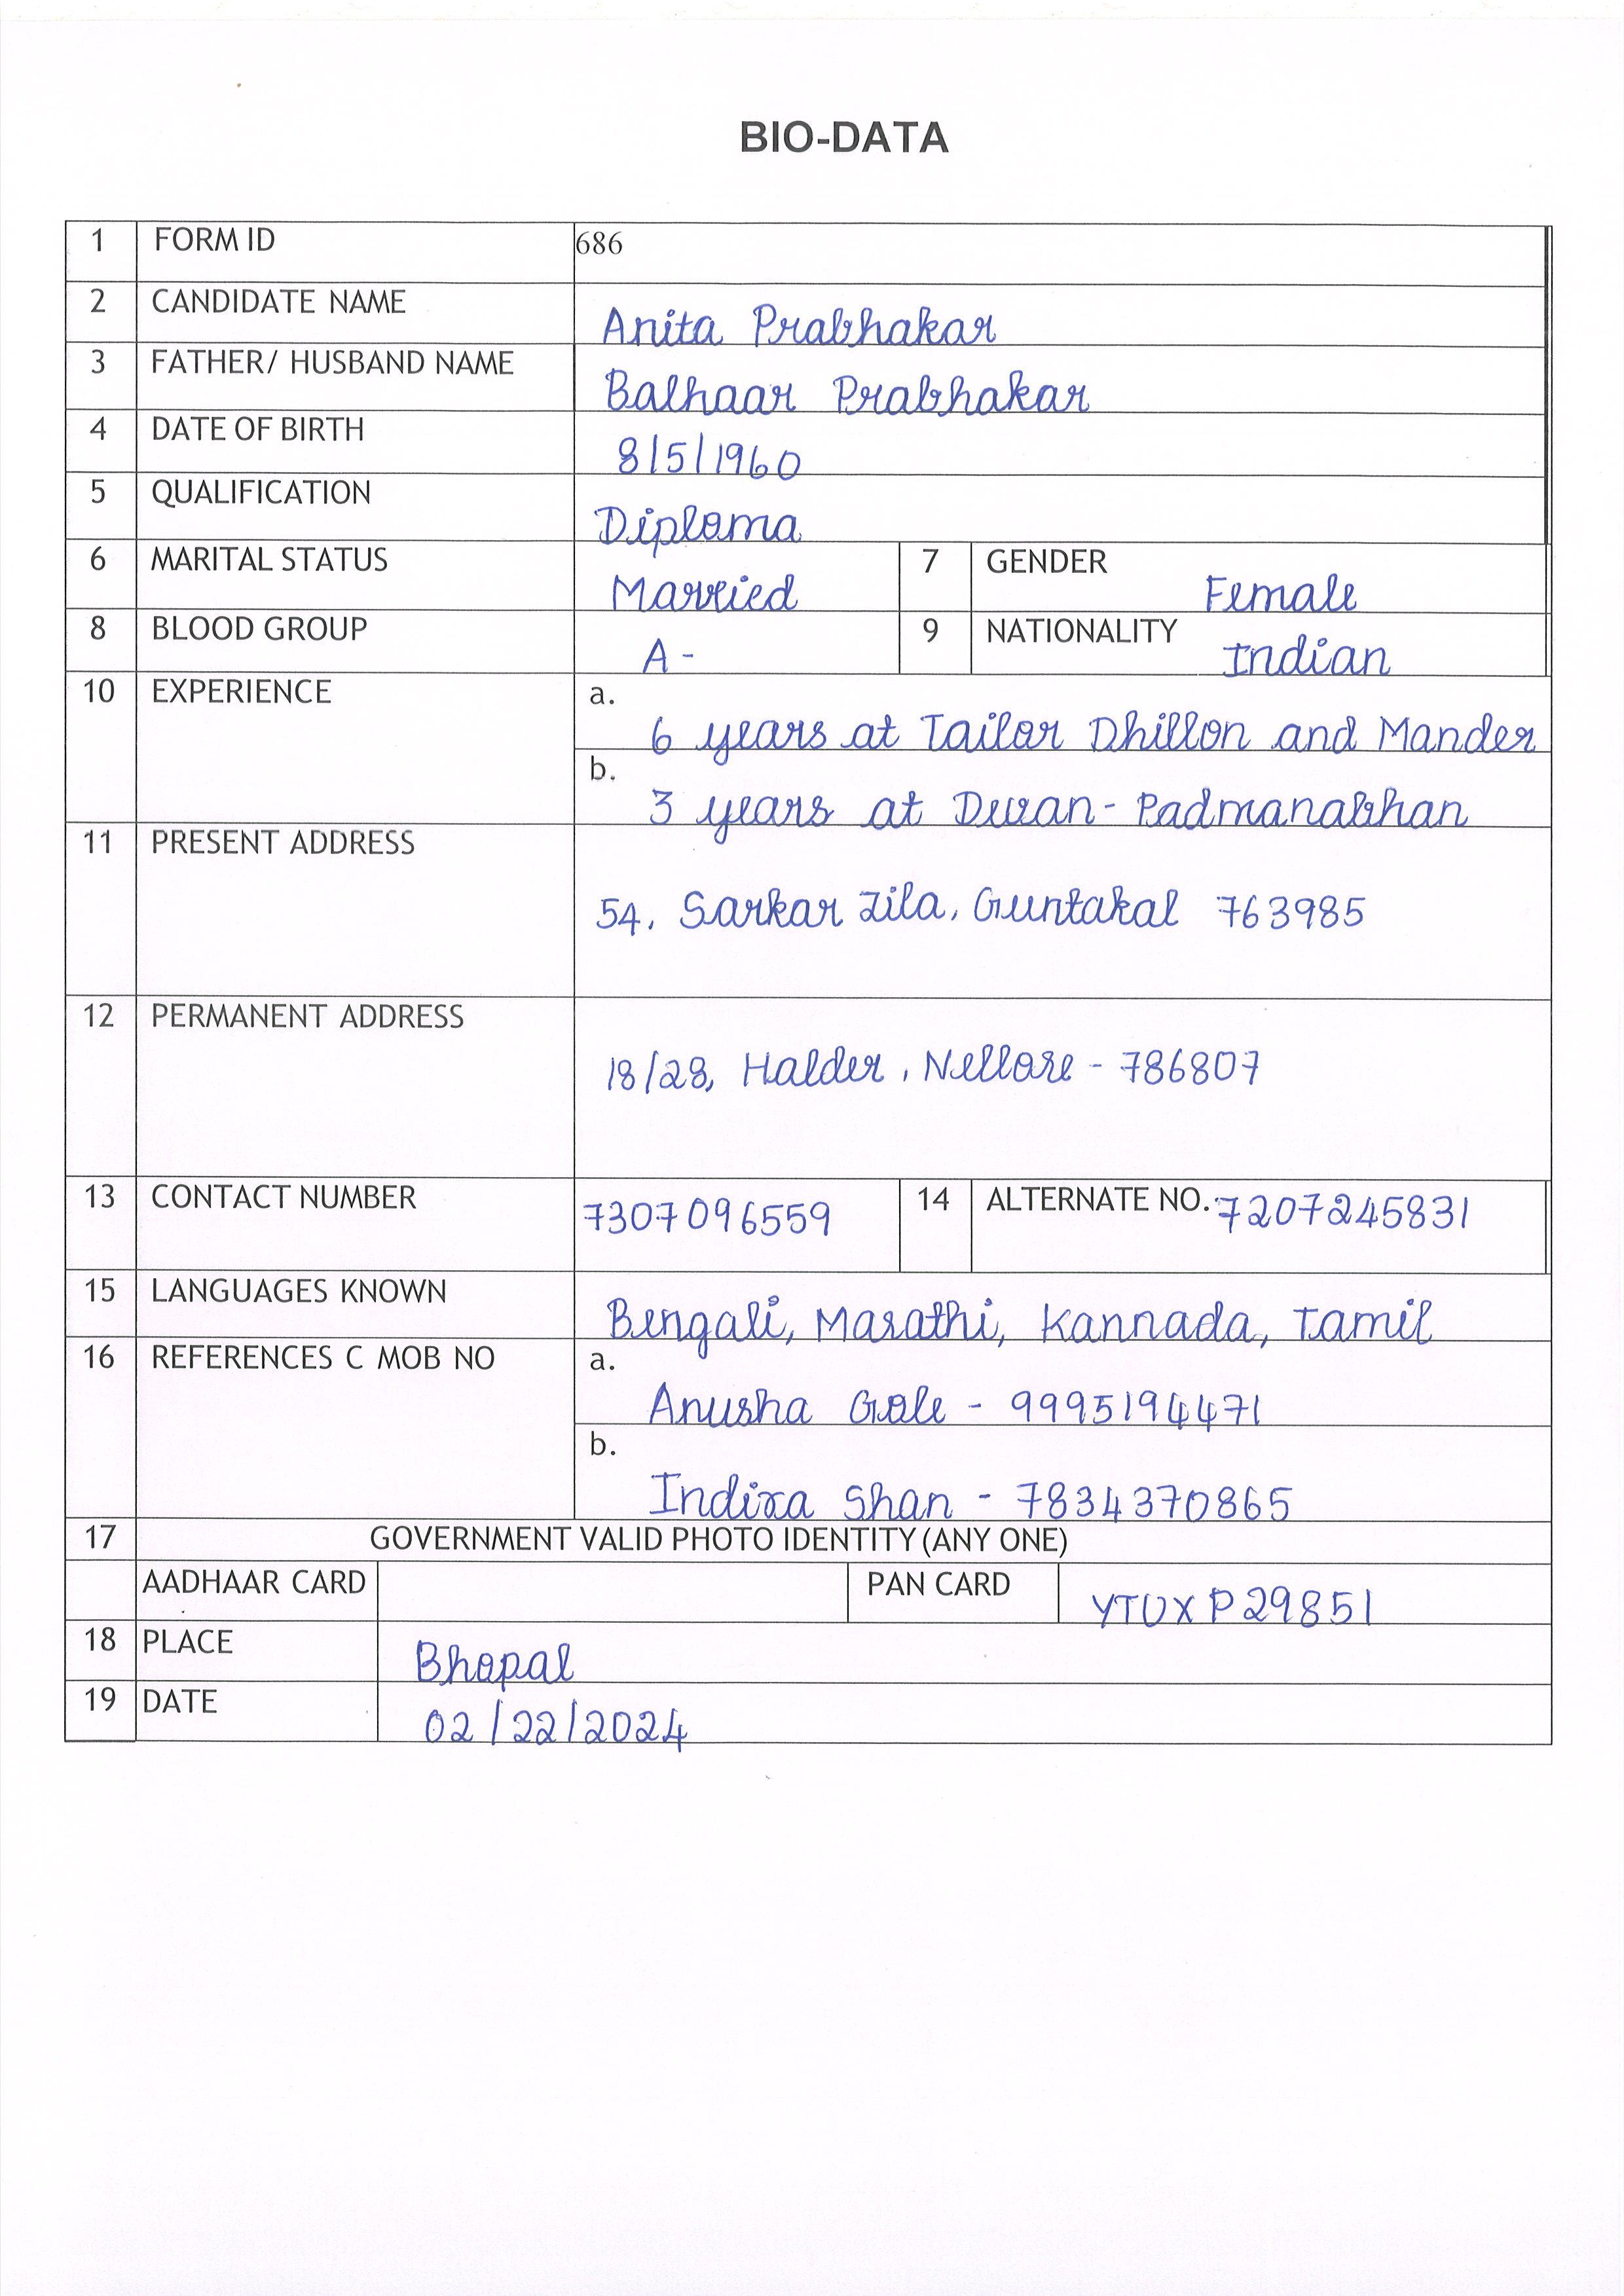 BIO-DATA
1 FORM ID 686
2 CANDIDATE NAME Anita Prabhakar
3 FATHER/ HUSBAND NAME Balhaar Prabhakar
4 DATE OF BIRTH 8/5/1960
5 QUALIFICATION Diploma
6 MARITAL STATUS Married 7 GENDER Female
8 BLOOD GROUP A- 9 NATIONALITY Indian
10 EXPERIENCE a. 6 years at Tailor Dhillon and Mander
b. 3 years at Dewan-Padmanabhan
11 PRESENT ADDRESS 54, Sarkar Zila, Guntakal 763985
12 PERMANENT ADDRESS 18/28, Halder, Nellore - 786807
13 CONTACT NUMBER 7307096559 14 ALTERNATE NO. 7207245831
15 LANGUAGES KNOWN Bengali, Marathi, Kannada, Tamil
16 REFERENCES C MOB NO a. Anusha Gole - 9995194471
b. Indira Shan - 7834370865
17 GOVERNMENT VALID PHOTO IDENTITY (ANY ONE)
AADHAAR CARD PAN CARD YTUXP29851
18 PLACE Bhopal
19 DATE 02/22/2024